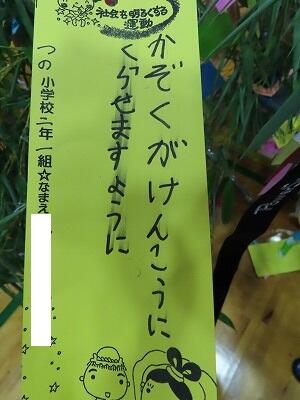 社会を明るくする
運動
かぞくがけんこうに
くらせますように
つの小学校二年一組☆なまえ